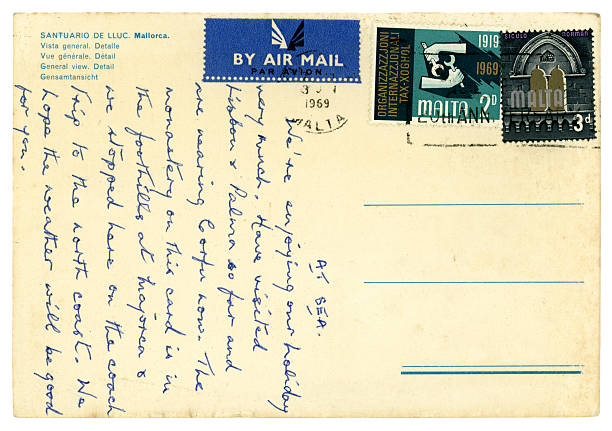 SANTUARIO DE LLUC. Mallorca.
Vista general. Detalle
Vue générale. Détail
General view. Detail
Gensamtansicht
BY AIR MAIL
PAR AVION
1969
MALTA
ORGANIZZAZZJONI
INTERNAZZJONALI
TAX-XOGĦOL
1919
1969
MALTA 2D
SICULO NORMAN
MALTA
3d
AT SEA.
We're enjoying our holiday
very much. Have visited
Lisbon & Palma so far and
are nearing Corfu now. The
monastery on this card is in
the foothills at Majorca &
we stopped here on the coach
trip to the north coast. We
hope the weather will be good
for you.